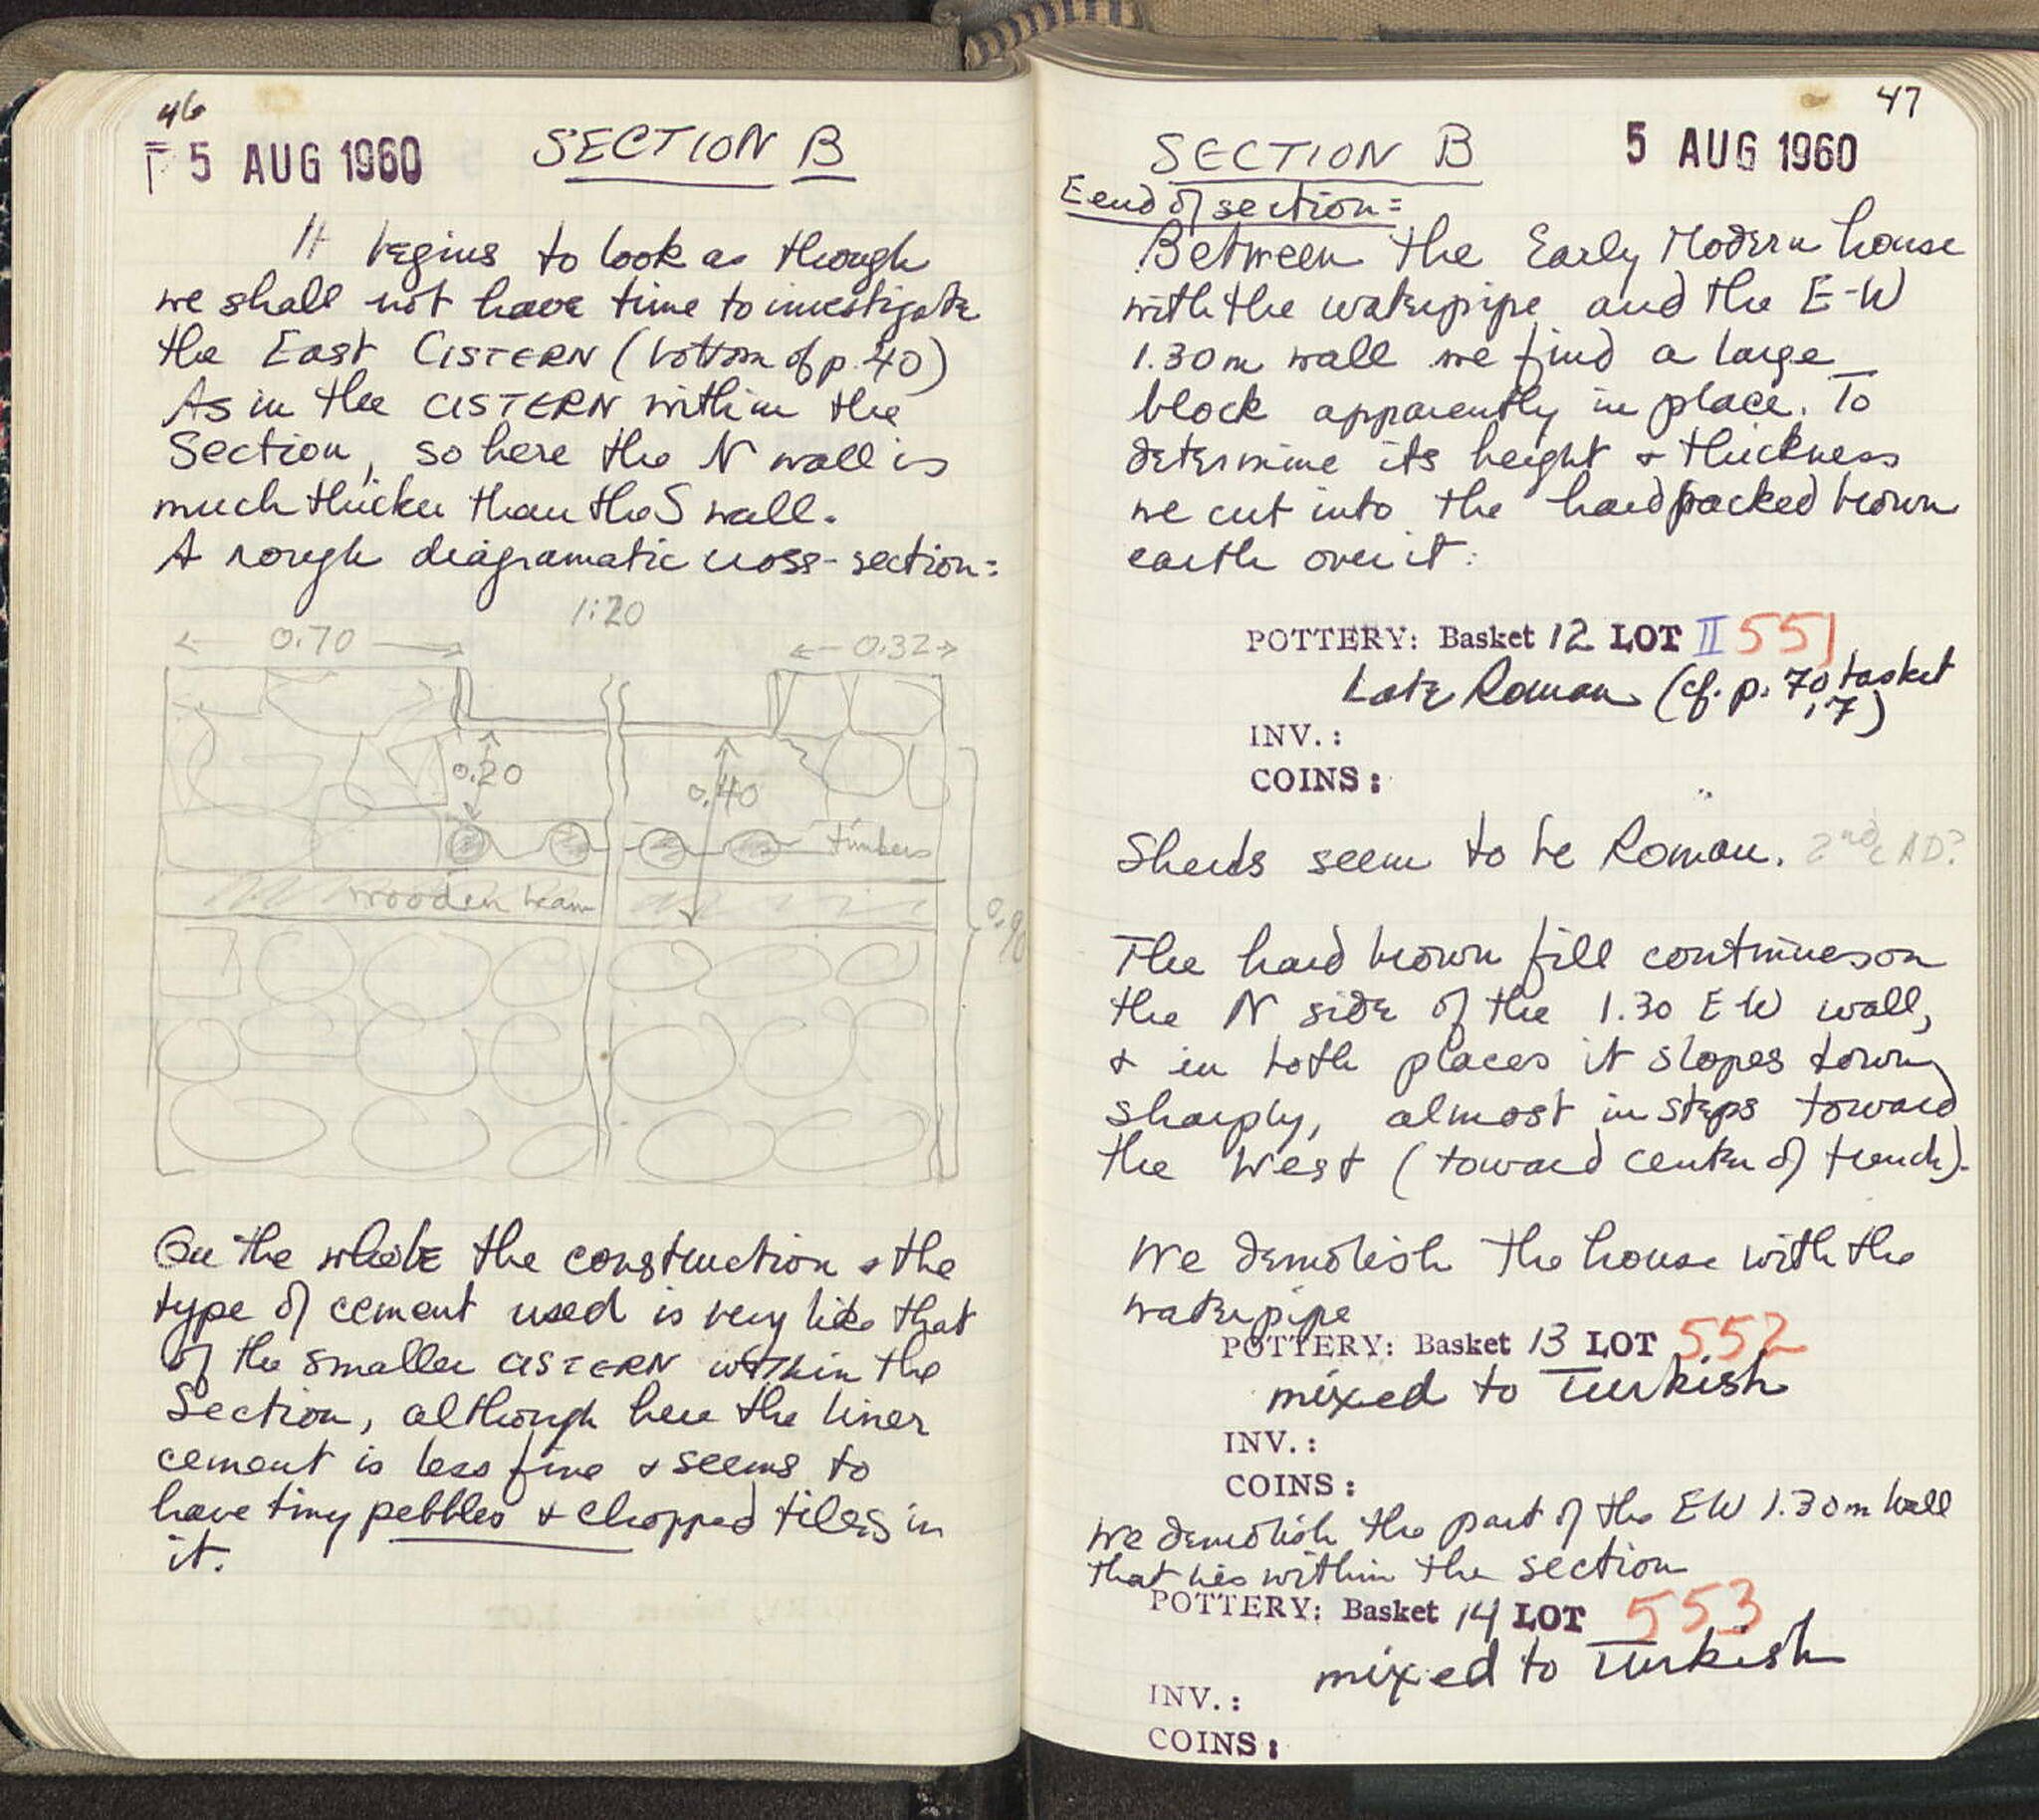 46
5 AUG 1960 SECTION B
It begins to look as though
we shall not have time to investigate
the East CISTERN (bottom of p. 40)
As in the CISTERN within the
Section, so here the N wall is
much thicker than the S wall.
A rough diagramatic cross-section:
1:20
0.70
0.32
0.20
0.40
timbers
wooden beam
0.90
On the whole the construction & the
type of cement used is very like that
of the smaller CISTERN within the
Section, although here the liner
cement is less fine & seems to
have tiny pebbles & chopped tiles in
it.
47
SECTION B 5 AUG 1960
E end of section:
Between the Early Modern house
with the waterpipe and the E-W
1.30m wall we find a large
block apparently in place. To
determine its height & thickness
we cut into the hard packed brown
earth over it:
POTTERY: Basket 12 LOT II 551
Late Roman (cf. p. 70, basket
17)
INV.:
COINS:
Sherds seem to be Roman. 2nd c AD?
The hard brown fill continues on
the N side of the 1.30 EW wall,
& in both places it slopes down
sharply, almost in steps toward
the West (toward center of trench).
We demolish the house with the
waterpipe
POTTERY: Basket 13 LOT 552
mixed to Turkish
INV.:
COINS:
We demolish the part of the EW 1.30m wall
that lies within the section
POTTERY: Basket 14 LOT 553
mixed to Turkish
INV.:
COINS: